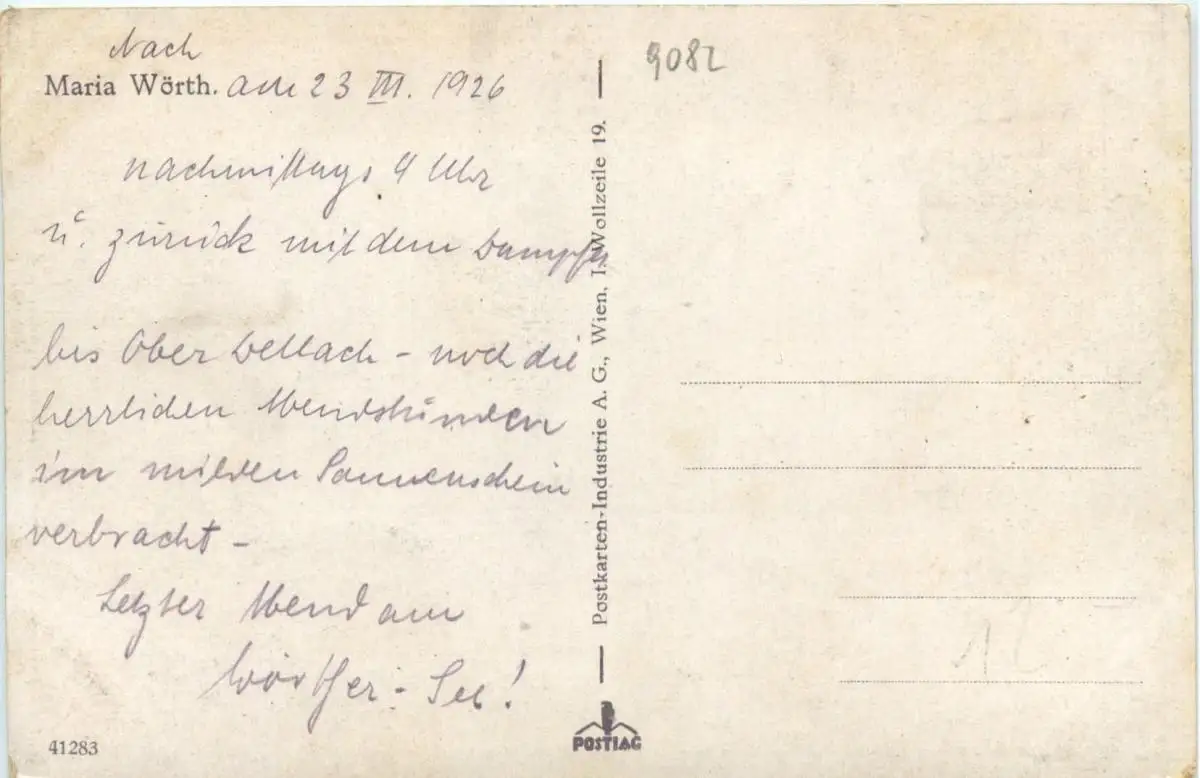 Nach
Maria Wörth. am 23 III. 1926
nachmittags 4 Uhr
u. zurück mit dem Dampfer
bis Ober Dellach - noch die
herrlichen Abendstunden
im milden Sonnenschein
verbracht -
Letzter Abend am
Wörther-See!
41283
Postkarten-Industrie A. G., Wien, I. Wollzeile 19.
POSTIAG
9082